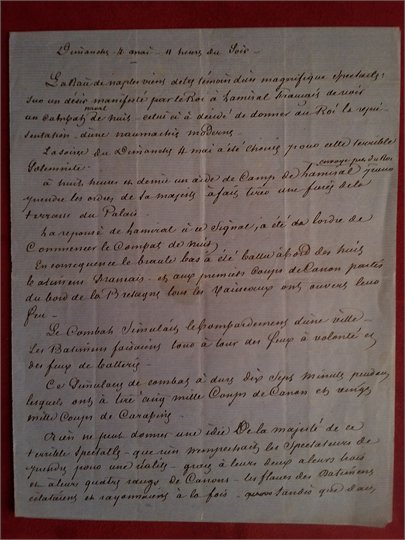 Dimanche 4 mai - 11 heures du Soir -
La Baie de naples vient d'etre témoin d'un magnifique Spectacle:
Sur un désir manifesté par le Roi à l'amiral Français de voir
un Combat naval de nuit - celui ci a décidé de donner au Roi la repré
sentation d'une naumachie moderne.
La soirée du Dimanche 4 mai a été choisie pour cette
Solemnité -
à huit heures et demie un aide de Camp de l'amiral envoyé par du Roi pour
prendre les ordres de Sa majesté a fait tirer une fusée de la
terrasse du Palais.
La réponse de l'amiral à ce Signal, a été l'ordre de
Commencer le Combat de nuit
En consequence le branle bas a été battu à bord des huit
batimens Français - et aux premiers Coups de Canon partis
du bord de la Bretagne tous les Vaisseaux ont ouvert leur
feu -
Le Combat Simulait le bombardement d'une ville -
Les Batimens faisaient tour à tour des feux à volonté et
des feux de batterie -
Ce Simulacre de combat a duré Dix Sept minutes pendant
lesquelles on a tiré cinq mille Coups de Canon et vingt
mille Coups de Carabine -
Rien ne peut donner une idée De la majesté de ce
terrible Spectacle - que rien n'empechait les Spectateurs de
prendre pour une réalité - grace à leurs deux
et à leurs quatre rangs de Canons - les flancs des Batimens
éclataient et rayonnaient à la fois - tandis que